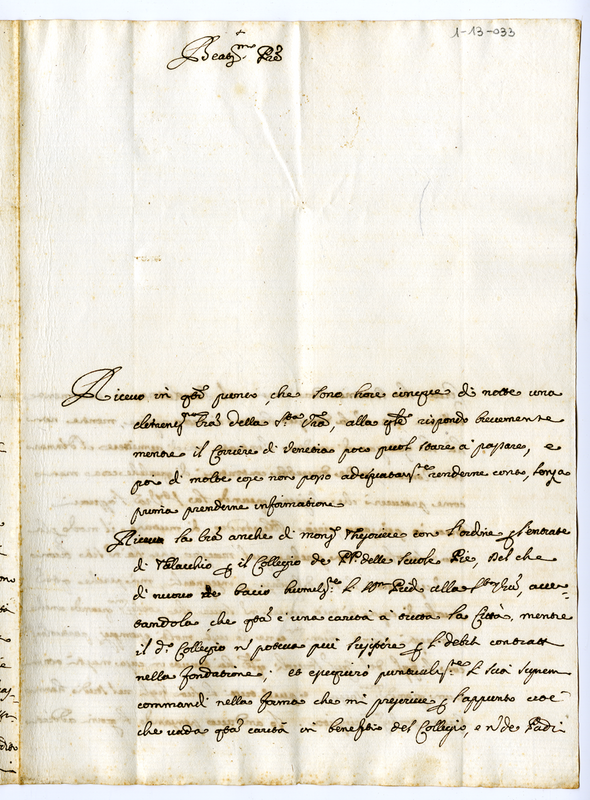 1-13-033
Beatis.mo Pre
Ricevo in q.to punto, che sono hore cinque di notte una
clemen.ma lra della S.tà Vra, alla q.le rispondo brevemente
mentre il Corriere di Venetia poco puol stare à passare, e
poi di molte cose non posso adequatam.te renderne conto, senza
prima prenderne informatione
Ricevo la lra anche di mons.r Thesoriere con l'ordine p l'entrate
di Valacchio p il Collegio de PP. delle Scuole Pie, del che
di nuovo ne bacio humilm.te li S.mi Piedi alla S.tà Vra, accer-
tandola che q.ta è una carità à tutta la Città, mentre
il d.o Collegio n poteva più sussistere p li debiti contratti
nella fondatione, et esequirò puntualm.te li suoi supremi
commandi nella forma che mi prescrive p l'appunto cioè
che vada q.ta carità in benefitio del Collegio, e n de Padri